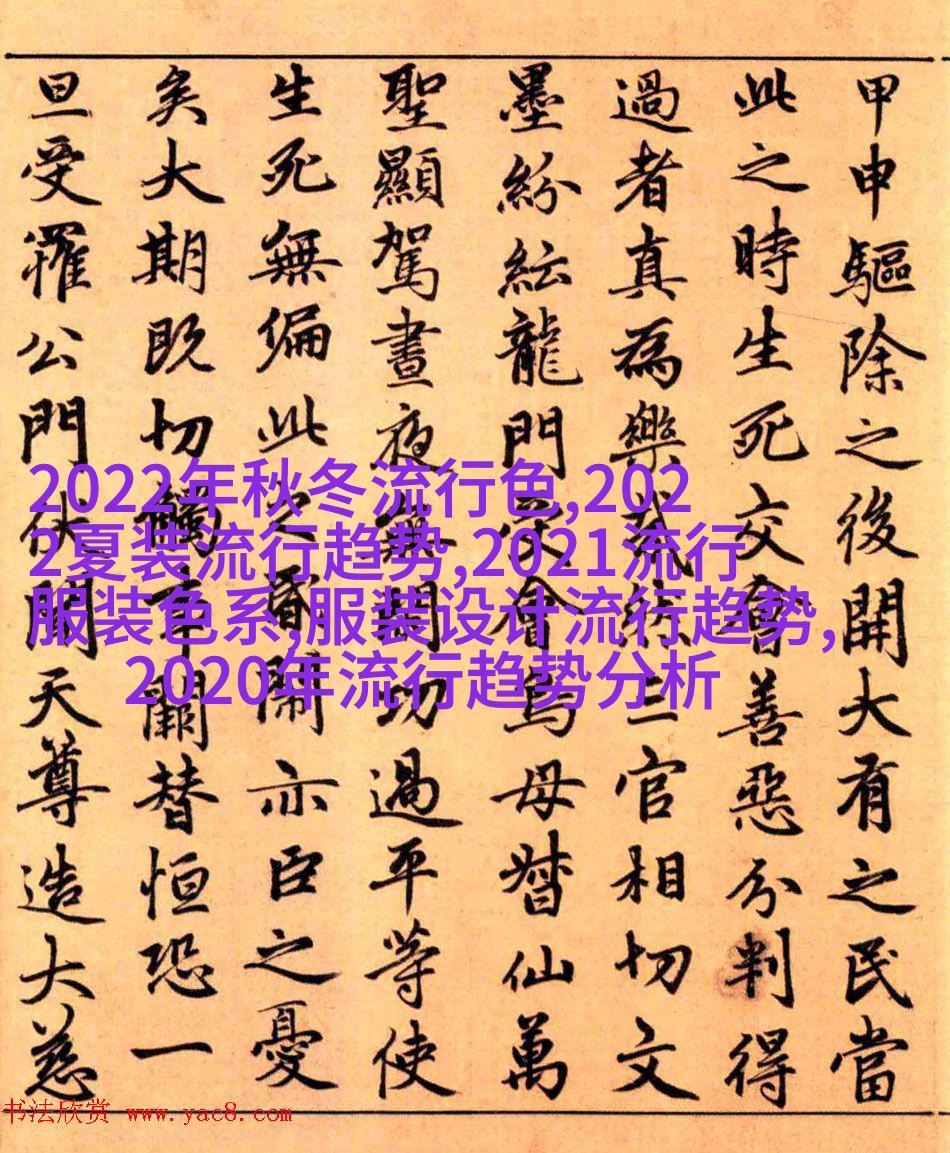 甲申驅除之後開大有之民當
此之時生死交會善惡分判得
過者真為樂哉結三官相切文
墨紛紜龍門受會鳥母督仙萬
聖顯駕晝夜無閒功過平等使
生死無偏此之昏鬧亦臣之憂
矣大期既切觸事關替恒恐一
旦受罹公門伏聞天尊造大慈
2022年秋冬流行色,202
2夏装流行趋势,2021流行
服装色系,服装设计流行趋势,
2020年流行趋势分析
书法欣赏 www.yac8.com